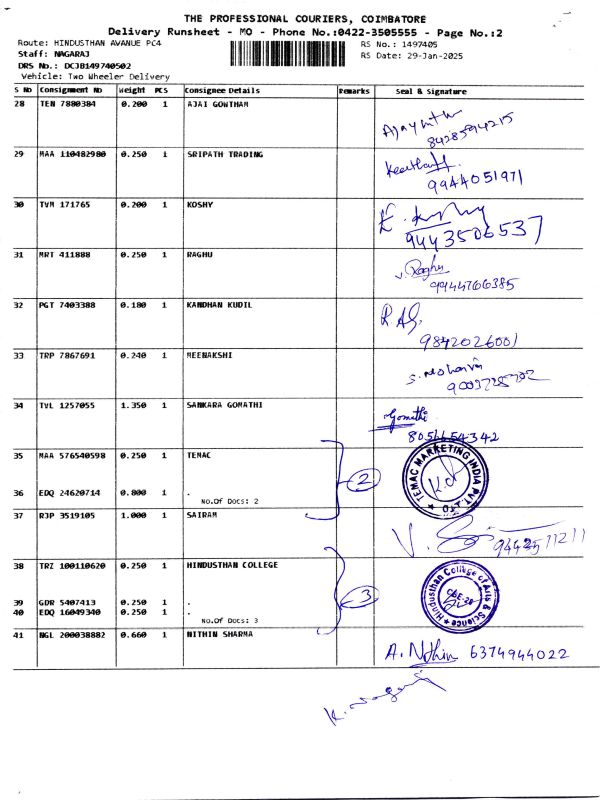 THE PROFESSIONAL COURIERS, COIMBATORE
Delivery Runsheet - MO - Phone No.:0422-3505555 - Page No.:2
Route: HINDUSTHAN AVANUE PC4
RS No.: 1497405
Staff: NAGARAJ
RS Date: 29-Jan-2025
DRS No.: DCJB149740502
Vehicle: Two Wheeler Delivery
S No Consignment No Weight PCS Consignee Details Remarks Seal & Signature
28 TEN 7880384 0.200 1 AJAI GOWTHAM
8428594215
29 MAA 110482980 0.250 1 SRIPATH TRADING
9944051971
30 TVM 171765 0.200 1 KOSHY
9443506537
31 MRT 411888 0.250 1 RAGHU
V. Raghu
9944766385
32 PGT 7403388 0.180 1 KANDHAN KUDIL
9842026001
33 TRP 7867691 0.240 1 MEENAKSHI
34 TVL 1257055 1.350 1 SANKARA GOMATHI
Gomathi
8056654342
35 MAA 576540598 0.250 1 TEMAC
TEMAC MARKETING INDIA PVT. LTD
2
36 EDQ 24620714 0.800 1 .
No.Of Docs: 2
37 RJP 3519105 1.000 1 SAIRAM
38 TRZ 100110620 0.250 1 HINDUSTHAN COLLEGE
Hindusthan College of Arts & Science
CBE-28
3
39 GDR 5407413 0.250 1 .
40 EDQ 16049340 0.250 1 .
No.Of Docs: 3
41 NGL 200038882 0.660 1 NITHIN SHARMA
A. Nithin 6374944022